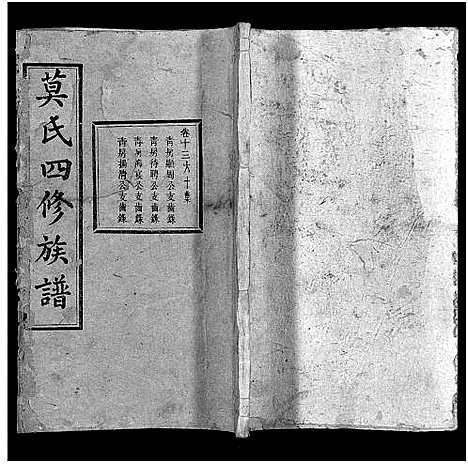 莫氏四修族譜
卷十三 六十葉
青房 周公支齒錄
青房待聘公支齒錄
青房 宸公支齒錄
青房 清公支齒錄